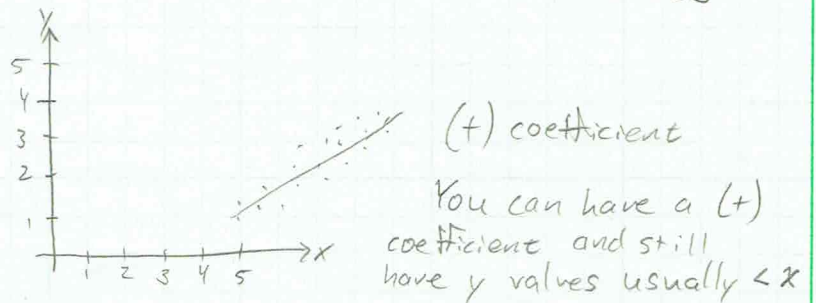 Y
5
4
3
2
1
1 2 3 4 5
X
(+) coefficient
You can have a (+)
coefficient and still
have y values usually < x